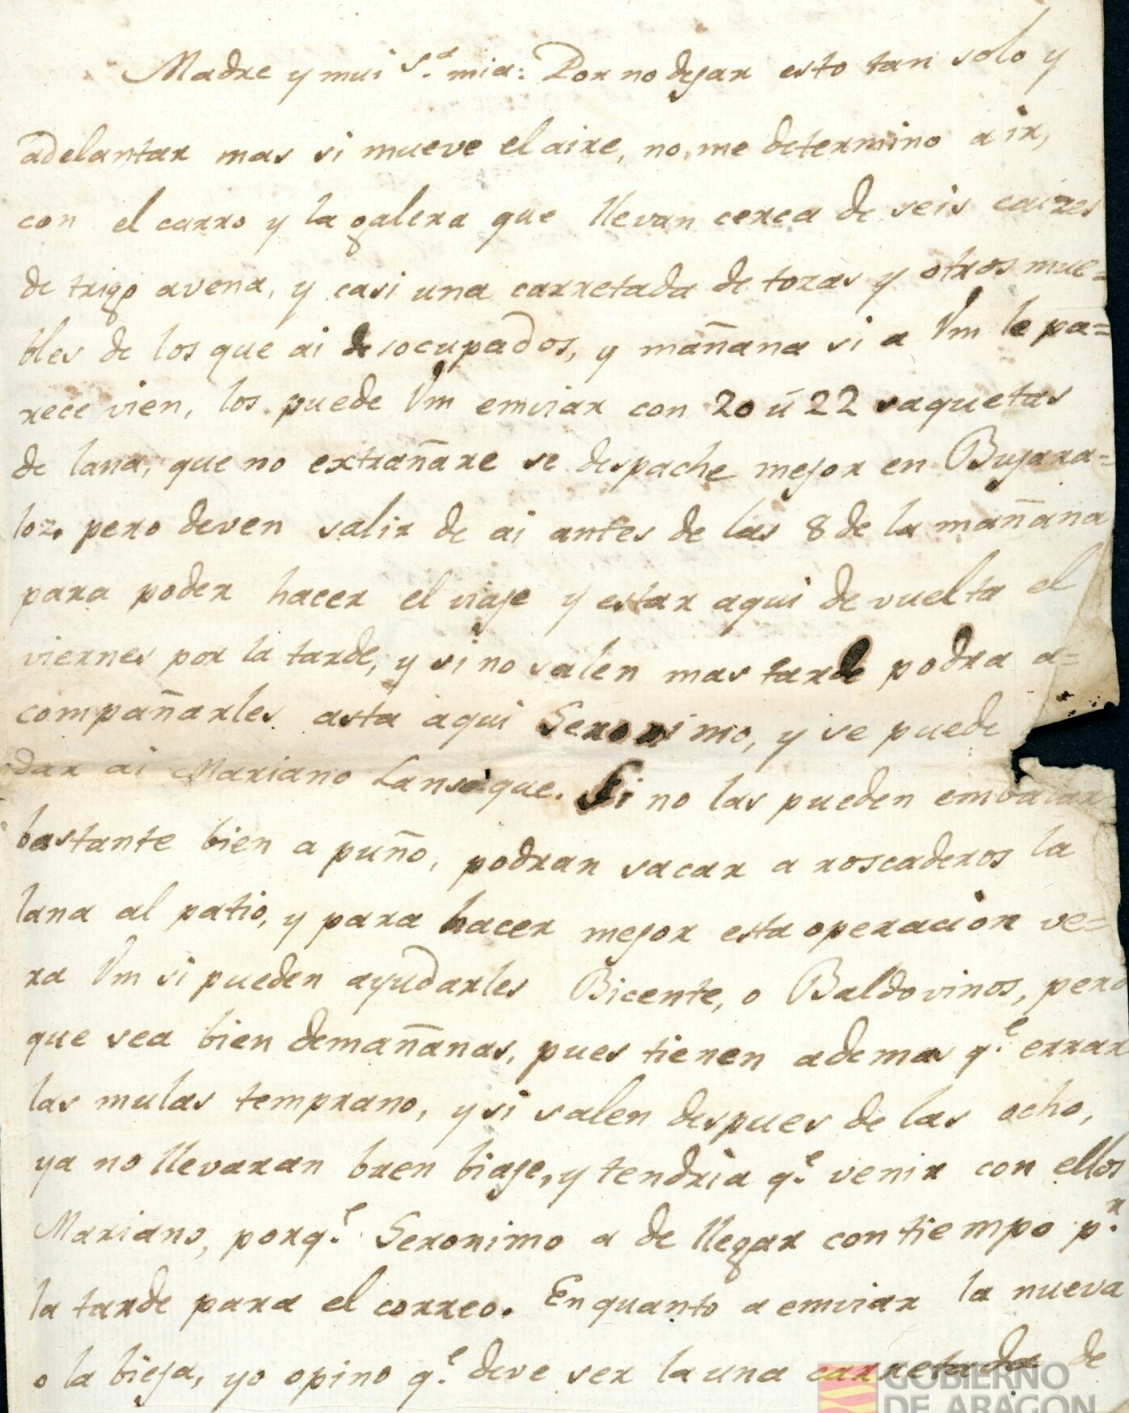 Madre y mui S.ª mia: Por no dejar esto tan solo y
adelantar mas si mueve el aire, no, me determino a ir,
con el carro y la galera que llevan cerca de seis caizes
de trigo avena, y casi una carretada de tozas y otros mue=
bles de los que ai desocupados, y mañana si a Vm le pa=
rece vien, los puede Vm emviar con 20 ú 22 saquetas
de lana, que no extrañare se despache mejor en Bujara=
loz. pero deven salir de ai antes de las 8 de la mañana
para poder hacer el viaje y estar aqui de vuelta el
viernes por la tarde, y si no salen mas tarde podra a=
compañarles asta aqui Geronimo, y se puede
dar ai Mariano Lansaque. Si no las pueden embalar
bastante bien a puño, podran sacar a roscaderos la
lana al patio, y para hacer mejor esta operacion ve=
ra Vm si pueden ayudarles Bicente, o Baldovinos, pero
que sea bien demañanas, pues tienen ademas q.e errar
las mulas temprano, y si salen despues de las ocho,
ya no llevaran bren biaje, y tendria q.e venir con ellos
Mariano, porq.e Geronimo a de llegar con tiempo p.r
la tarde para el correo. En quanto a emviar la nueva
o la bieja, yo opino q.e deve ser la una carretada de
GOBIERNO
DE ARAGON